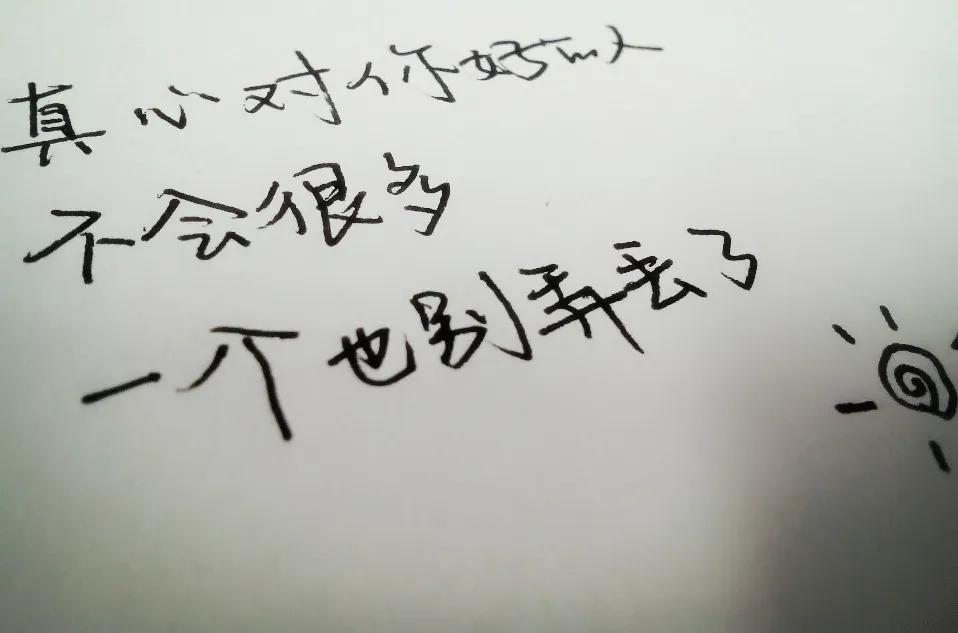 真心对你好的人
不会很多
一个也别弄丢了